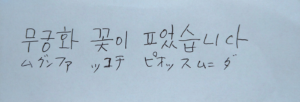 무궁화 꽃이 피었습니다
ムグンファ ッコチ ピオッスムニダ